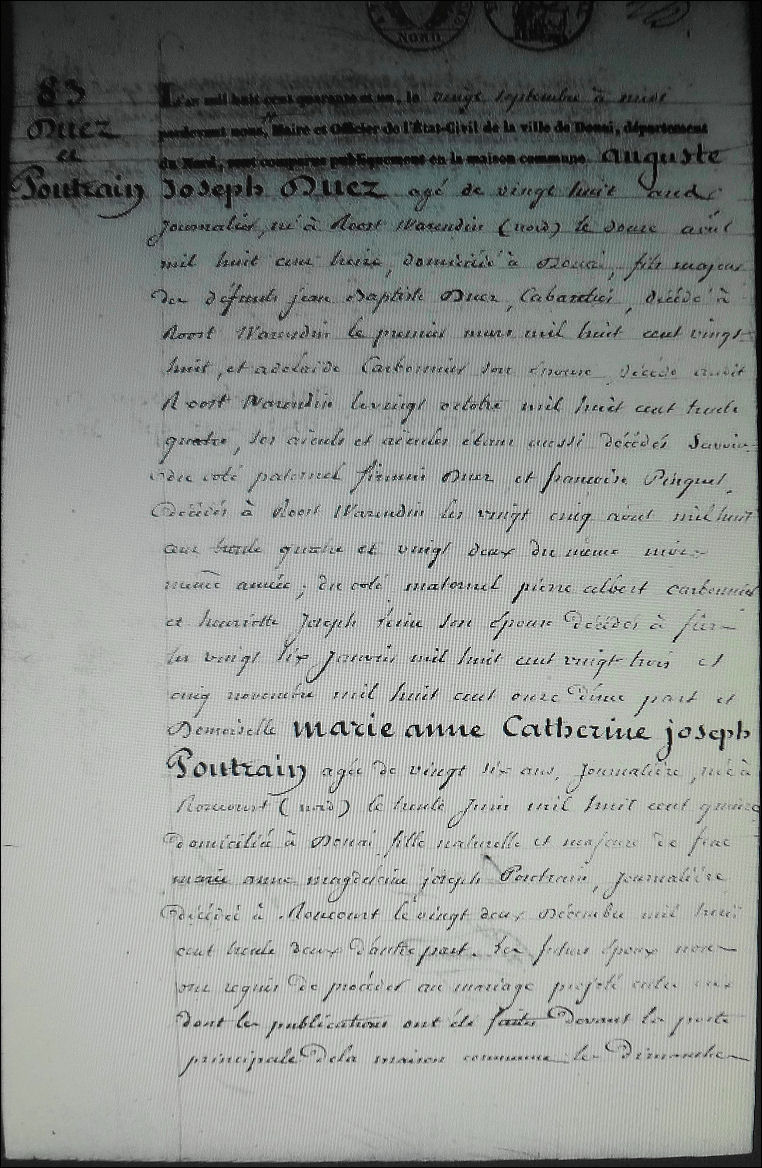 NORD
83
Duez
et
Poutrain
L'an mil huit cent quarante et un, le vingt septembre à midi
pardevant nous, Maire et Officier de l'État-Civil de la ville de Douai, département
du Nord, sont comparus publiquement en la maison commune auguste
Joseph Duez agé de vingt huit ans
journalier, né à Roost Warendin (nord) le douze avril
mil huit cent treize, domicilié à Douai, fils majeur
des défunts jean Baptiste Duez, Cabaretier, décédé à
Roost Warendin le premier mars mil huit cent vingt-
huit, et adelaïde Carbonnier son épouse, décédée audit
Roost Warendin le vingt octobre mil huit cent trente
quatre, ses aieuls et aieules étant aussi décédés Savoir
du coté paternel firmin Duez et françoise Pinquet,
décédés à Roost Warendin les vingt cinq aout mil huit
cent trente quatre et vingt deux du même mois
même année; du coté maternel pierre albert carbonnier
et henriette Joseph son épouse décédés à
les vingt six Janvier mil huit cent vingt trois et
cinq novembre mil huit cent onze d'une part et
Demoiselle marie anne Catherine joseph
Poutrain agée de vingt six ans, Journalière, née à
Roucourt (nord) le trente Juin mil huit cent quinze
domiciliée à Douai fille naturelle et majeure de feue
marie anne magdeleine joseph Poutrain, Journalière,
décédée à Roucourt le vingt deux Décembre mil huit
cent trente deux d'autre part. Les futurs époux nous
ont requis de procéder au mariage projeté entre eux
dont les publications ont été faites devant la porte
principale de la maison commune les Dimanches